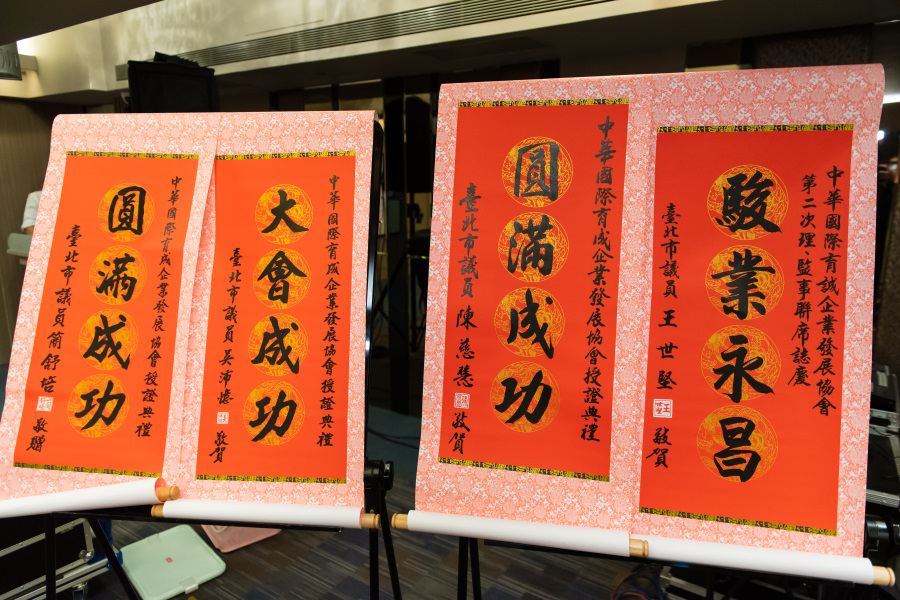 中華國際育誠企業發展協會
第二次理監事聯席誌慶
駿業永昌
臺北市議員 王世堅 敬賀
中華國際育成企業發展協會授證典禮
圓滿成功
臺北市議員 陳慈慧 敬賀
中華國際育成企業發展協會授證典禮
大會成功
臺北市議員 吳沛憶 敬賀
中華國際育成企業發展協會授證典禮
圓滿成功
臺北市議員簡舒培 敬贈